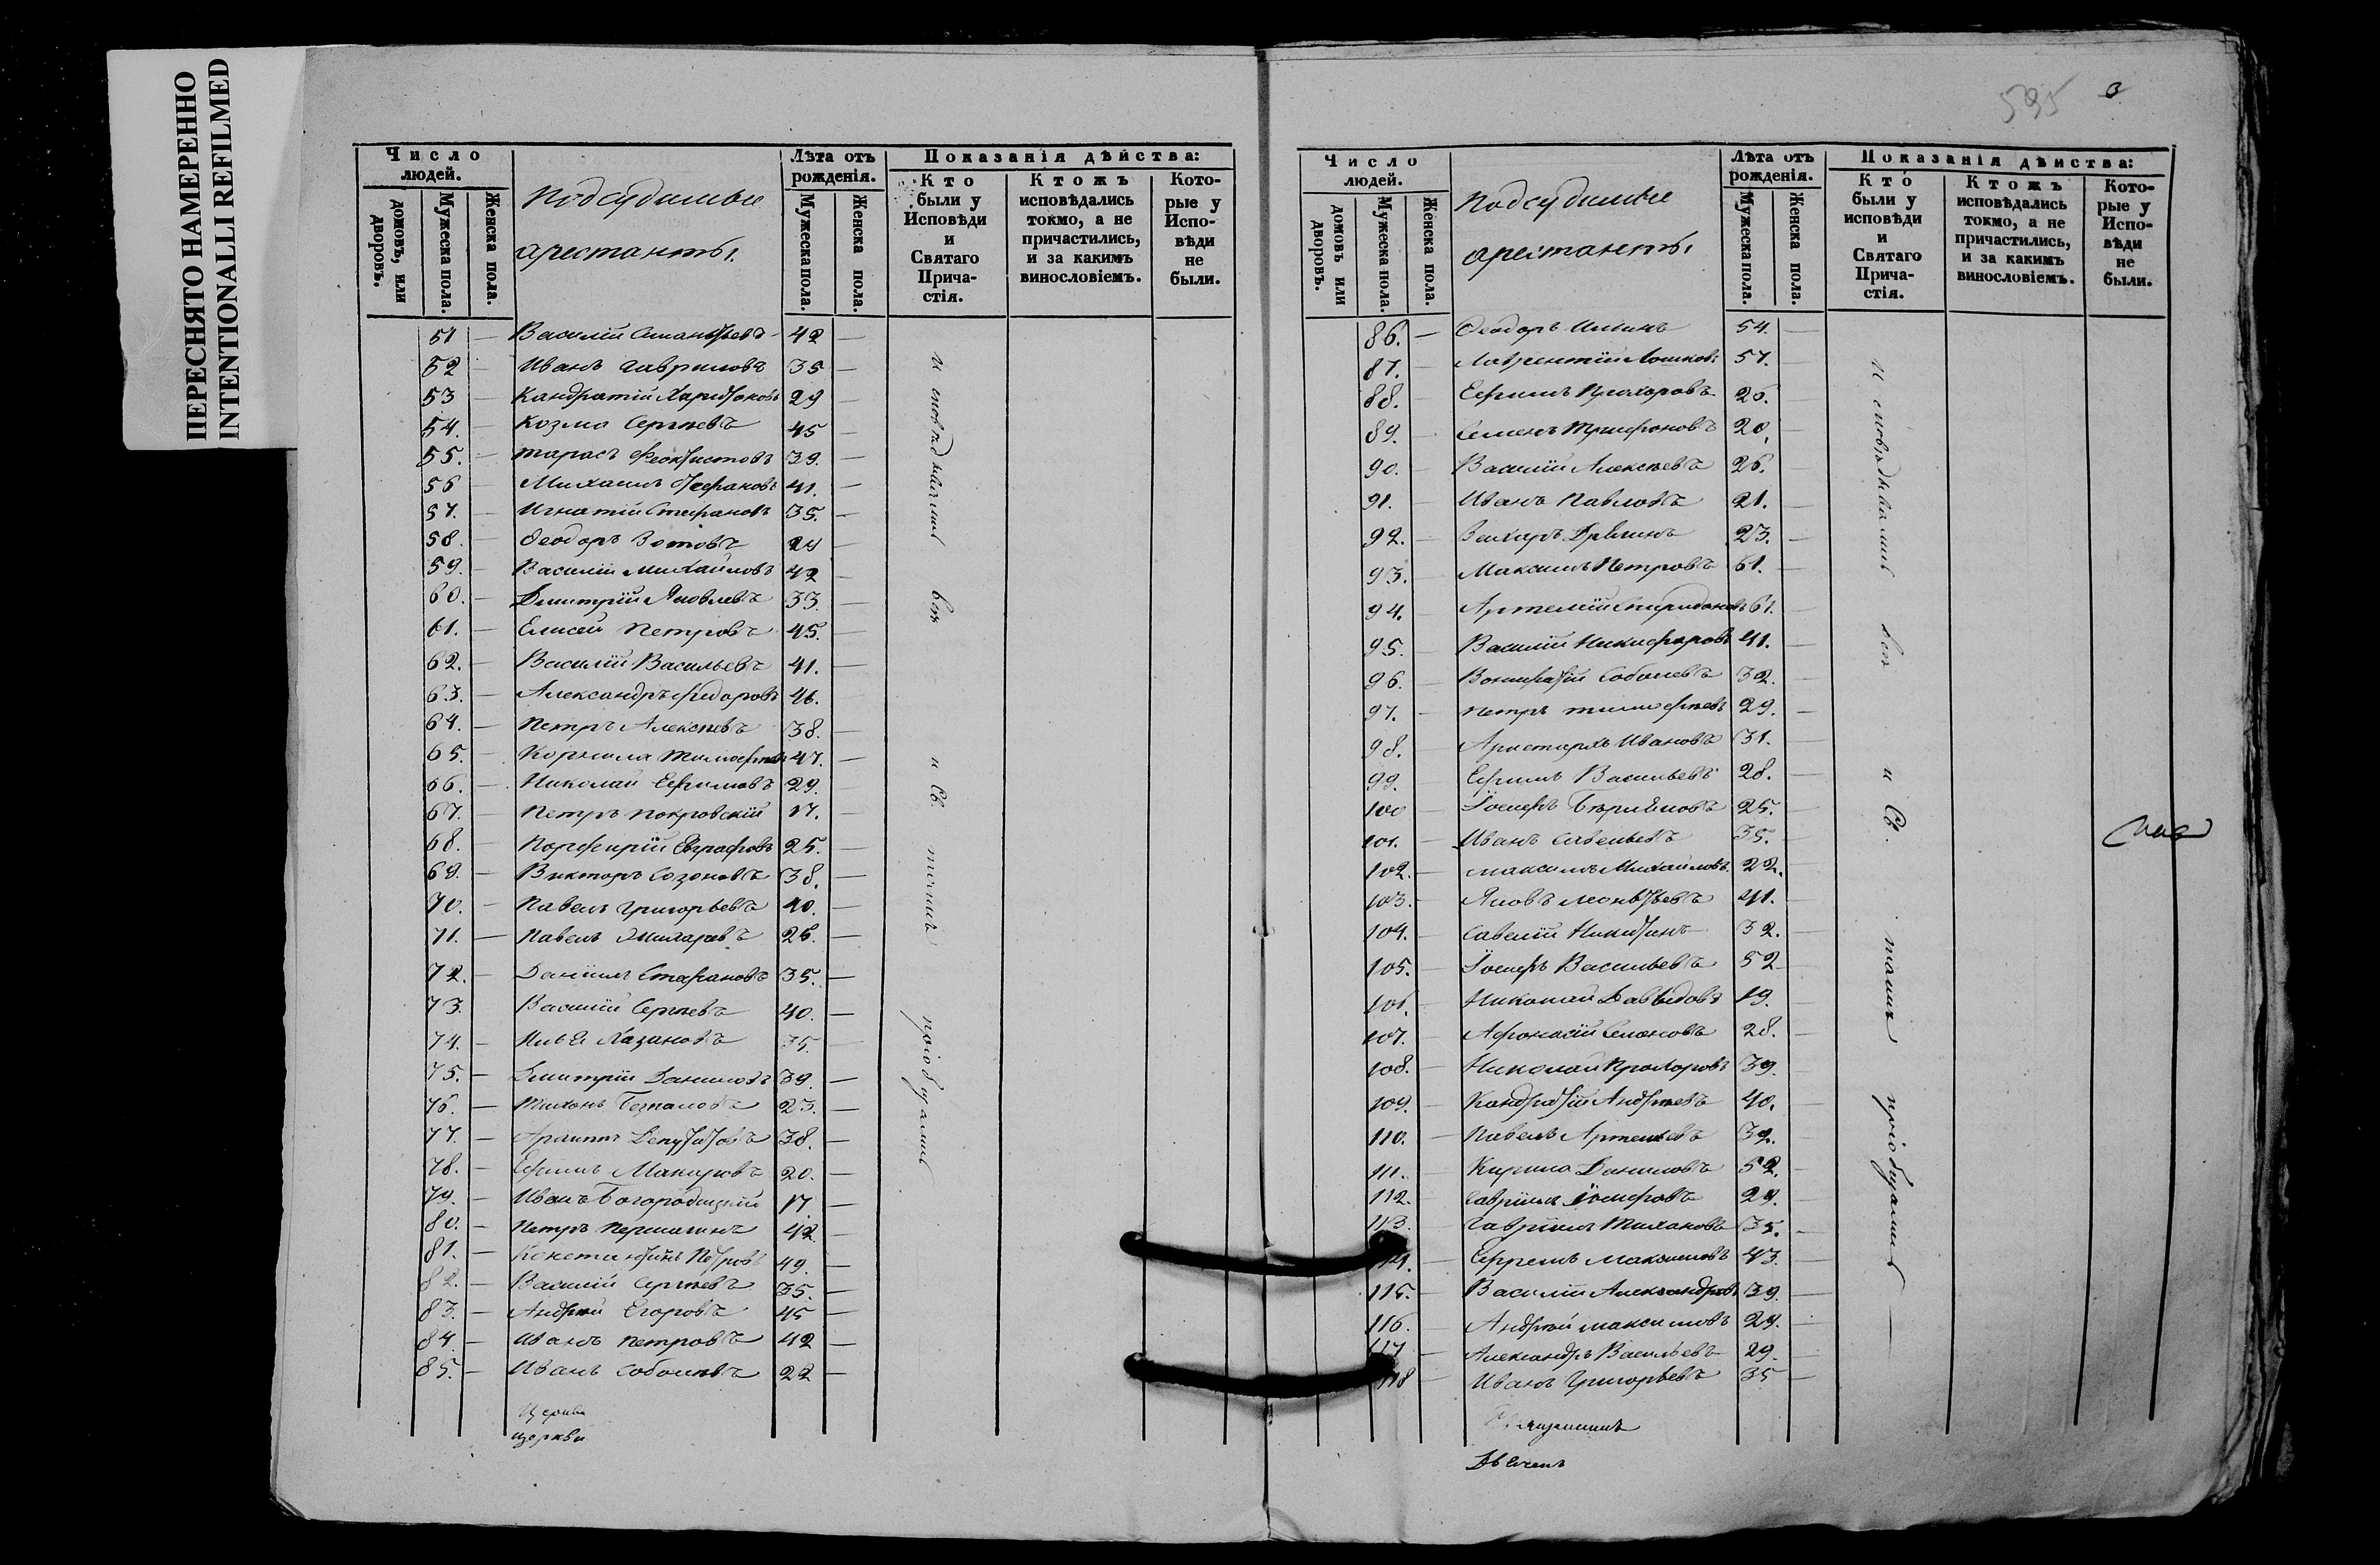 ПЕРЕСНЯТО НАМЕРЕННО
INTENTIONALLI REFILMED
Число людей.
домовъ, или дворовъ.
Мужеска пола.
Женска пола.
Подсудимые
арестанты.
Лѣта отъ рожденія.
Мужеска пола.
Женска пола.
Показанія дѣйства:
Кто были у Исповѣди и Святаго Прича-стія.
Ктожъ исповѣдались токмо, а не причастились, и за какимъ винословіемъ.
Кото-рые у Испо-вѣди не были.
51 — Василій 42 —
52 — Иванъ Гавриловъ 35 —
53 — Кандратій Харитоновъ 29 —
54. — Козма Сергѣевъ 45 —
55. — Тарасъ Феоктистовъ 39. —
56 — Михаилъ 41. —
57. — Игнатій Стефановъ 35. —
58. — Феодоръ Зотовъ 24 —
59. — Василій Михайловъ 42 —
60. — Димитрій Яковлевъ 33. —
61. — Елисей Петровъ 45. —
62. — Василій Васильевъ 41. —
63. — Александръ Федоровъ 46. —
64. — Петръ Алексѣевъ 38. —
65. — Корнила Тимофѣевъ 47. —
66. — Николай Ефимовъ 29. —
67. — Петръ Покровскій 17. —
68. — Порфирій Евграфовъ 25. —
69. — Викторъ Созоновъ 38. —
70. — Павелъ Григорьевъ 40. —
71. — Павелъ 26. —
72. — Даніилъ Стефановъ 35. —
73. — Василій Сергѣевъ 40. —
74. — 35. —
75. — Димитрій Даниловъ 39. —
76. — Тихонъ 23. —
77. — 38. —
78. — Ефимъ Макаровъ 20. —
79. — Иванъ Богородицкій 17. —
80. — Петръ 42. —
81. — Константинъ Петровъ 49. —
82. — Василій Сергѣевъ 35. —
83. — Андрей Егоровъ 45 —
84. — Иванъ Петровъ 42 —
85. — Иванъ Соболевъ 22 —
исповѣдывались всѣ и Св. таинъ пріобщались
церкви
595
Число людей.
домовъ или дворовъ.
Мужеска пола.
Женска пола.
Подсудимые
арестанты
Лѣта отъ рожденія.
Мужеска пола.
Женска пола.
Показанія дѣйства:
Кто были у исповѣди и Святаго Прича-стія.
Ктожъ исповѣдались токмо, а не причастились, и за какимъ винословіемъ.
Кото-рые у Испо-вѣди не были.
86. — Феодоръ 54. —
87. — Лаврентій 57. —
88. — Ефимъ Прохоровъ 26. —
89. — Семенъ Трифоновъ 20. —
90. — Василій Алексѣевъ 26. —
91. — Иванъ Павловъ 21. —
92. — Захаръ 23. —
93. — Максимъ Петровъ 61. —
94. — Артемій Спиридоновъ 61. —
95. — Василій Никифоровъ 41. —
96. — Вонифатій Соболевъ 32. —
97. — Петръ Тимофѣевъ 29. —
98. — Аристархъ Ивановъ 31. —
99. — Ефимъ Васильевъ 28. —
100 — Іосифъ 25. —
101. — Иванъ Савельевъ 35. —
102. — Максимъ Михайловъ 22. —
103. — Яковъ Леонтьевъ 41. —
104. — Савелій Никитинъ 32. —
105. — Іосифъ Васильевъ 52 —
106. — Николай Давыдовъ 19. —
107. — Афонасій Семоновъ 28. —
108. — Николай Прохоровъ 39. —
109. — Кандратій Андреевъ 40. —
110. — Павелъ Артемьевъ 32. —
111. — Кирила Даниловъ 52. —
112. — Іосифовъ 29. —
113. — Гавріилъ Тихоновъ 35. —
114. — Ефремъ Максимовъ 43. —
115. — Василій Александровъ 39. —
116. — Андрей Максимовъ 29. —
117 — Александръ Васильевъ 29. —
118 — Иванъ Григорьевъ 35 —
исповѣдывались всѣ и Св. таинъ пріобщались
Священникъ